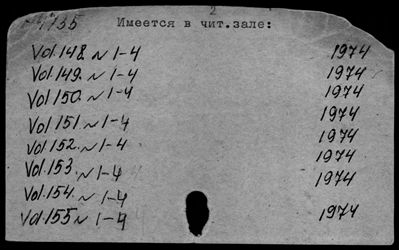 2
П4735 Имеется в чит.зале:
Vol.148. N 1-4 1974
Vol.149. N 1-4 1974
Vol 150. N 1-4 1974
Vol 151. N 1-4 1974
Vol 152. N 1-4 1974
Vol.153. N 1-4 1974
Vol.154. N 1-4 1974
Vol.155 N 1-4 1974